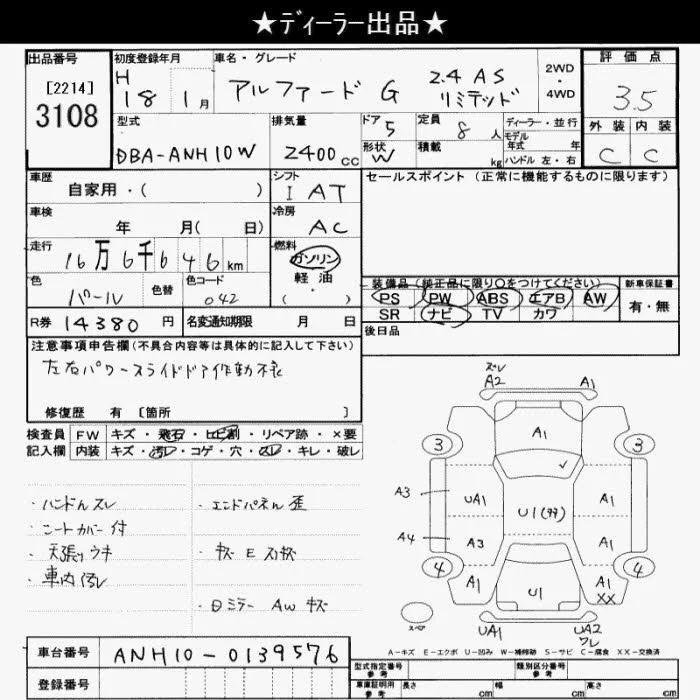 ★ディーラー出品★
出品番号
[2214]
3108
初度登録年月
H 18 1月
車名・グレード
アルファード G 2.4 AS リミテッド
2WD・4WD
評価点
3.5
外装 内装
C C
型式
DBA-ANH10W
排気量
2400cc
ドア 5
形状 W
定員 8人
積載 kg
ディーラー・並行
モデル年式 年
ハンドル 左・右
車歴
自家用・( )
シフト
I AT
セールスポイント(正常に機能するものに限ります)
車検
年 月( 日)
冷房
AC
走行
16万6千646km
燃料
ガソリン
軽油
( ・ )
色
パール
色替
色コード
042
装備品(純正品に限り○をつけてください)
PS PW ABS エアB AW
SR ナビ TV カワ
新車保証書
有・無
R券 14380円
名変通知期限 月 日
後日品
注意事項申告欄(不具合内容等は具体的に記入して下さい)
左右パワースライドドア作動不良
修復歴 有 [箇所 ]
検査員記入欄
FW キズ・飛石・ヒビ割・リペア跡・×要
内装 キズ・汚レ・コゲ・穴・スレ・キレ・破レ
・ハンドルスレ
・シートカバー付
・天張りウキ
・車内汚レ
・エンドパネル歪
・キズ E 刃
・日ミラー AW キズ
ズレ
A2 A1
A1
3 3
A3 UA1 U1 A1
A4 A3 A1
4 4
A1 U1 A1 XX
スペア
UA1 UA2 ワレ
A-キズ E-エクボ U-凹み W-補修跡 S-サビ C-腐食 XX-交換済
車台番号 ANH10-0139576
登録番号
型式指定番号 参考
類別区分番号 参考
車庫証明用 参考 長さ cm 幅 cm 高さ cm